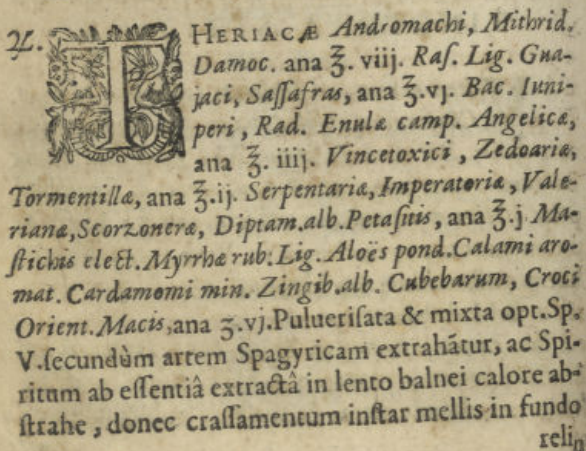 ♃. THERIACÆ Andromachi, Mithrid.
Damoc. ana ℥. viij. Raſ. Lig. Gua-
jaci, Saſſafras, ana ℥.vj. Bac. Iuni-
peri, Rad. Enulæ camp. Angelicæ,
ana ℥. iiij. Vincetoxici, Zedoariæ,
Tormentillæ, ana ℥.ij. Serpentariæ, Imperatoriæ, Vale-
rianæ, Scorzoneræ, Diptam.alb.Petaſitis, ana ℥.j Ma-
ſtichis elect.Myrrhæ rub.Lig. Aloës pond.Calami aro-
mat. Cardamomi min. Zingib.alb. Cubebarum, Croci
Orient.Macis, ana ʒ.vj.Pulueriſata & mixta opt.Sp.
V.ſecundùm artem Spagyricam extrahãtur, ac Spi-
ritum ab eſſentiâ extractâ in lento balnei calore ab-
ſtrahe, donec craſſamentum inſtar mellis in fundo
relin